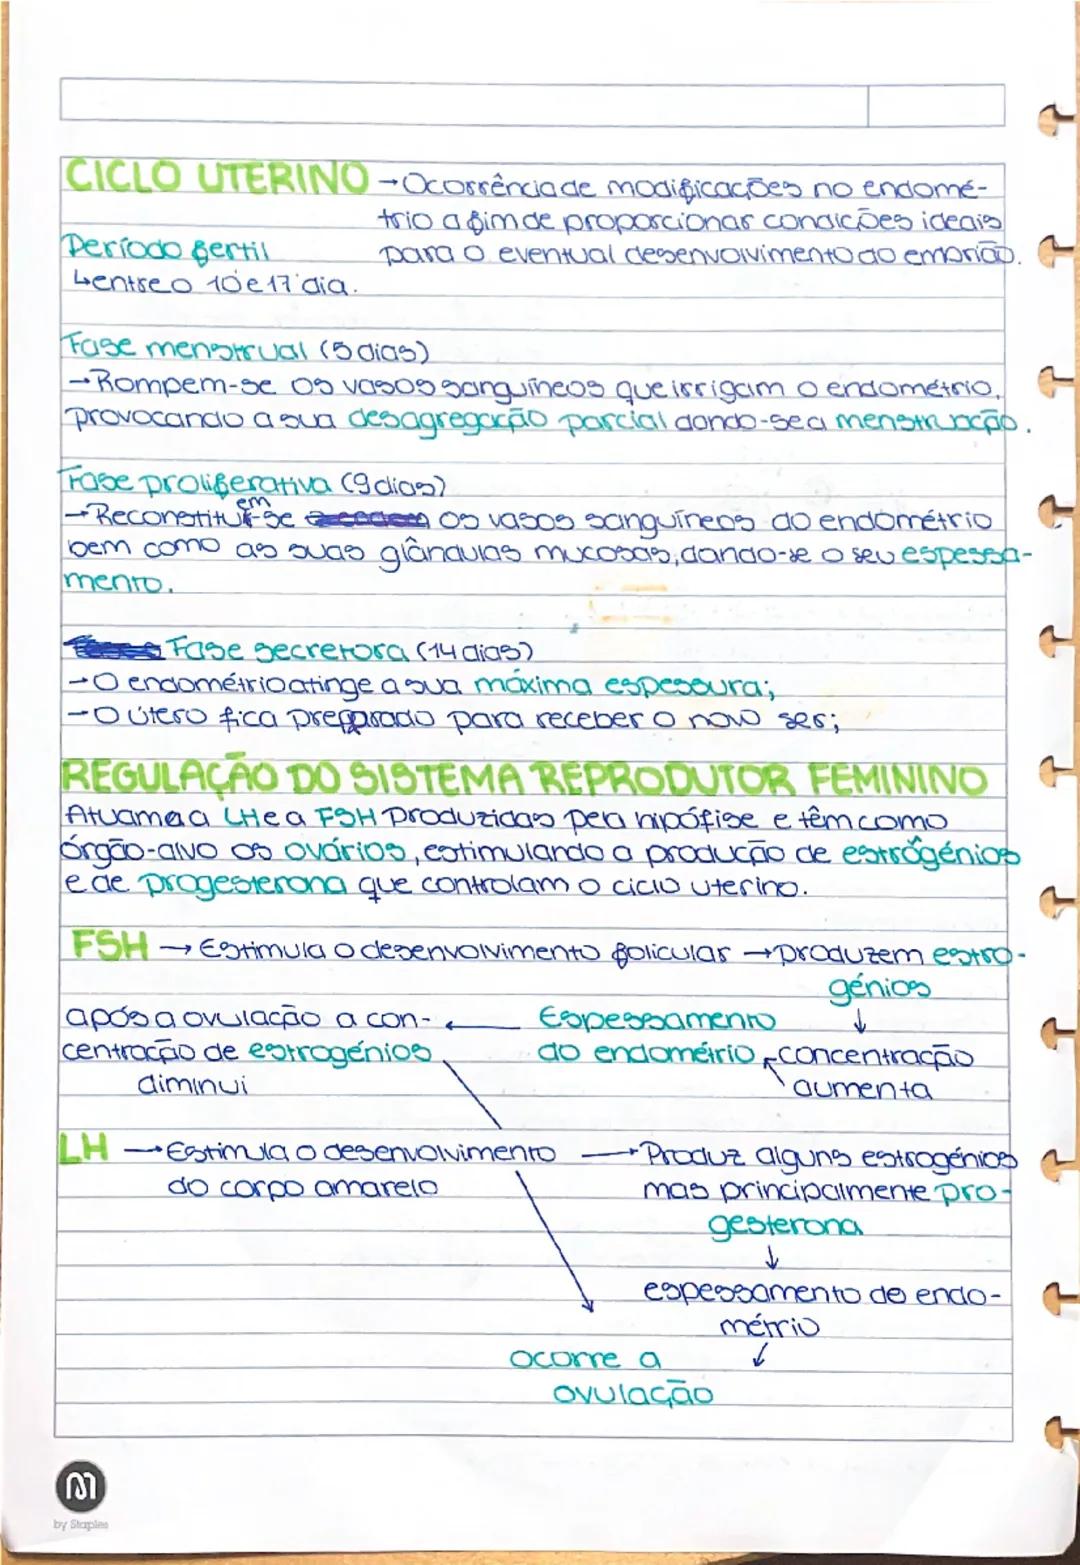 CICLO UTERINO → Ocorrência de modificações no endomé-
trio a fim de proporcionar condições ideais
Período fertil para o eventual desenvolvimento do embrião.
↳ entre o 10 e 17 dia.
Fase menstrual (5 dias)
→ Rompem-se os vasos sanguíneos que irrigam o endométrio,
provocando a sua desagregação parcial dando-se a menstruação.
Fase proliferativa (9 dias)
→ Reconstituem-se os vasos sanguíneos do endométrio
bem como as suas glândulas mucosas, dando-se o seu espessa-
mento.
Fase secretora (14 dias)
→ O endométrio atinge a sua máxima espessura;
→ O útero fica preparado para receber o novo ser;
REGULAÇÃO DO SISTEMA REPRODUTOR FEMININO
Atuam a LH e a FSH produzidas pela hipófise e têm como
órgão-alvo os ovários, estimulando a produção de estrogénios
e de progesterona que controlam o ciclo uterino.
FSH → Estimula o desenvolvimento folicular → produzem estro-
génios
↓
após a ovulação a con- ← Espessamento
centração de estrogénios do endométrio ← concentração
diminui aumenta
LH → Estimula o desenvolvimento → Produz alguns estrogénios
do corpo amarelo mas principalmente pro-
gesterona
↓
espessamento do endo-
métrio
↓
ocorre a
ovulação
by Staples